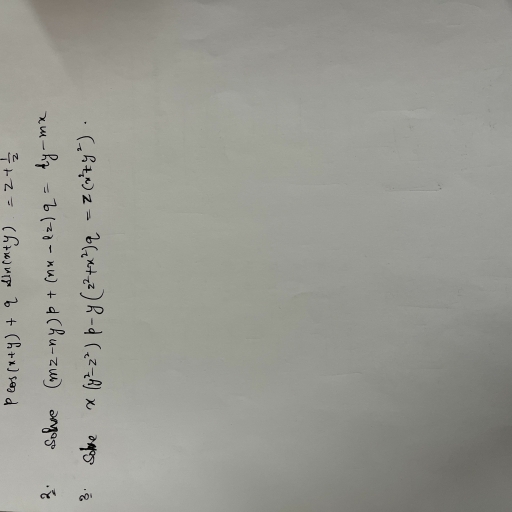 p cos(x+y) + q sin(x+y) = z + 1/z
2. Solve (mz-ny)p + (nx-lz)q = ly-mx
3. Solve x(y²-z²)p - y(z²+x²)q = z(x²+y²).